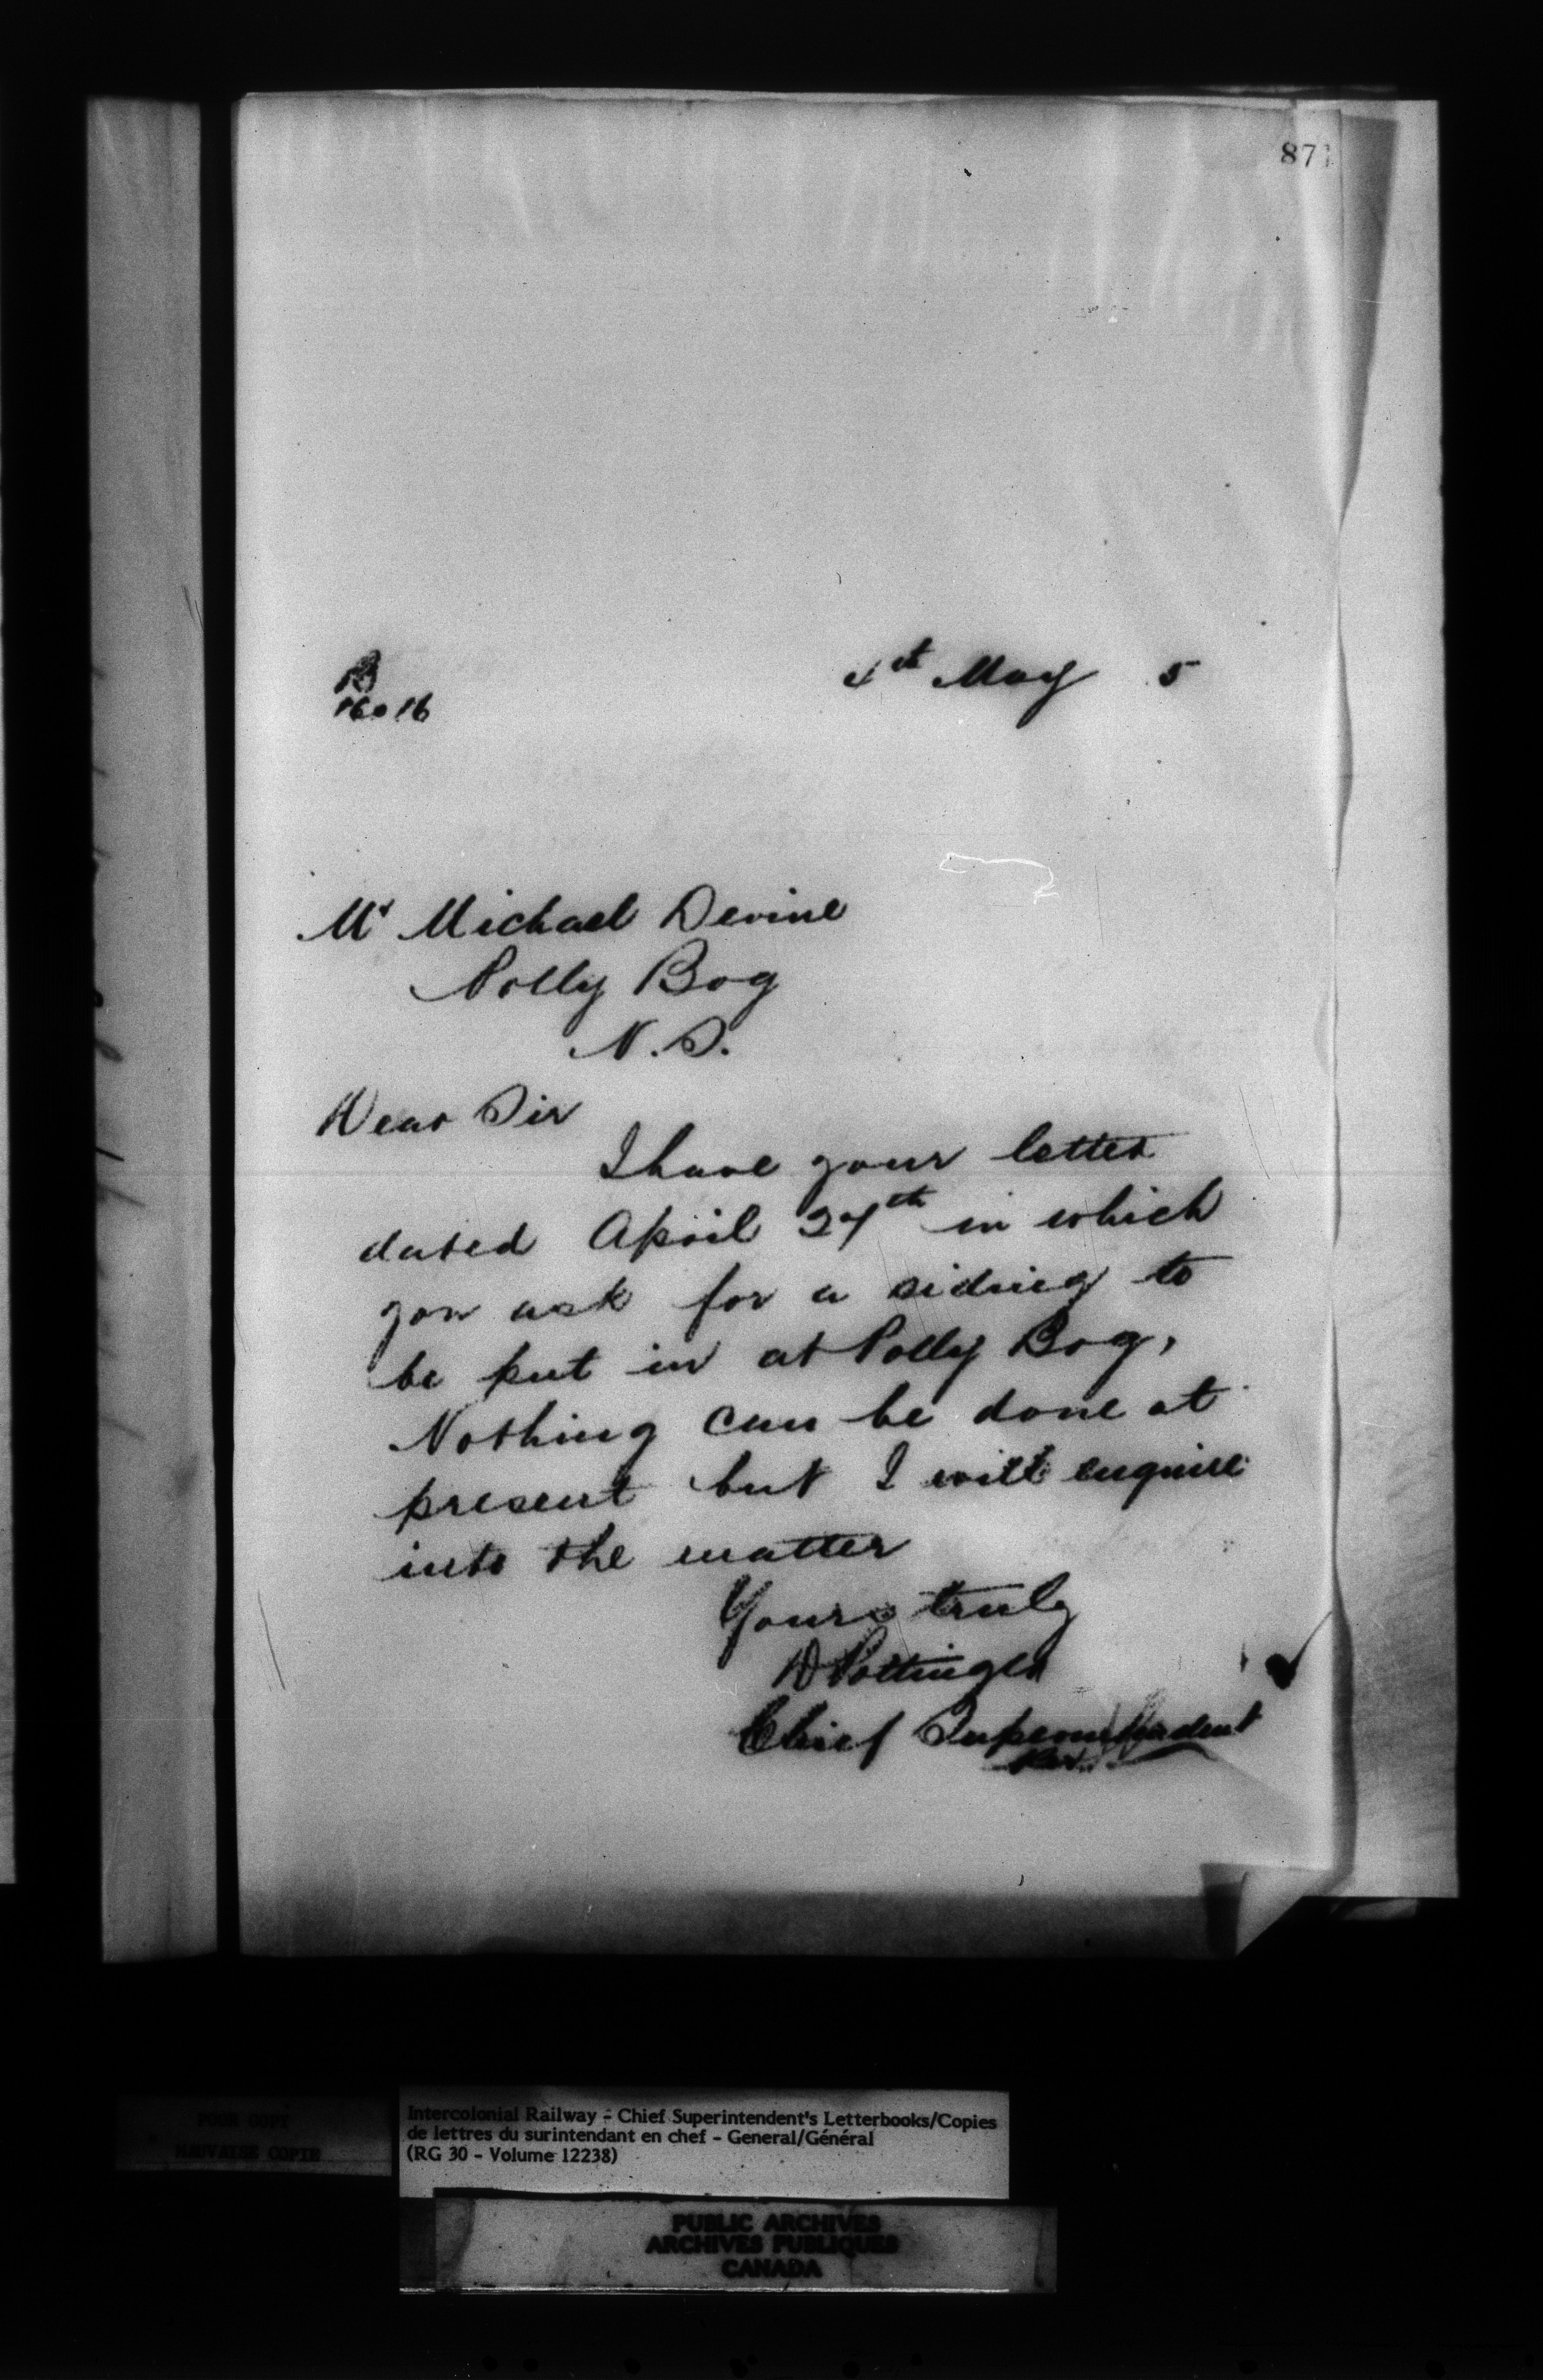 871
B
16016
4th May 5
Mr Michael Devine
Polly Bog
N.S.
Dear Sir
I have your letter
dated April 27th in which
you ask for a siding to
be put in at Polly Bog,
Nothing can be done at
present but I will enquire
into the matter
Yours truly
D Pottinger
Chief Superintendent
POOR COPY
MAUVAISE COPIE
Intercolonial Railway - Chief Superintendent's Letterbooks/Copies
de lettres du surintendant en chef - General/Général
(RG 30 - Volume 12238)
PUBLIC ARCHIVES
ARCHIVES PUBLIQUES
CANADA